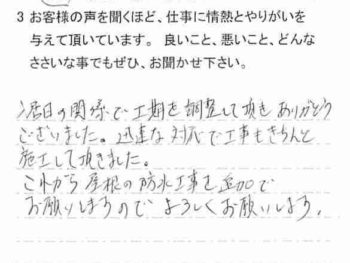 3 お客様の声を聞くほど、仕事に情熱とやりがいを
与えて頂いています。 良いこと、悪いこと、どんな
ささいな事でもぜひ、お聞かせ下さい。
日の関係で工期を調整して頂きありがとう
ございました。迅速な対応で工事もきちんと
施工して頂きました。
これから屋根の防水工事を追加で
お願いしますのでよろしくお願いします。